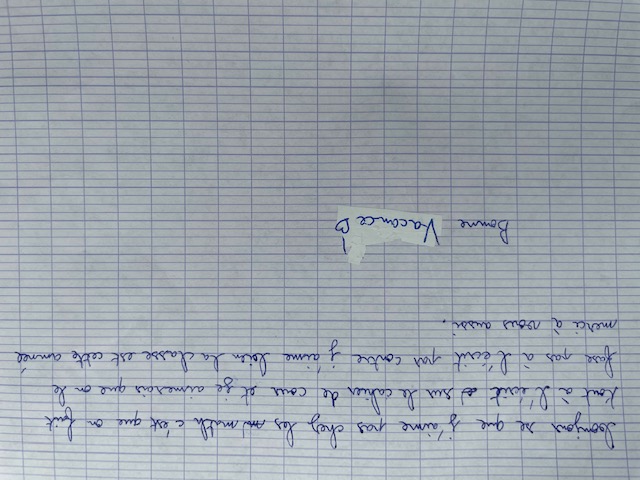 bonjour se que j'aime pas chez les math c'est que on fait
tout à l'écrit sur le cahier de cour et je aimerais que on le
fase pas à l'écrit par contre j'aime bien la classe est cette année
merci à vous aussi.
Bonne Vacance !